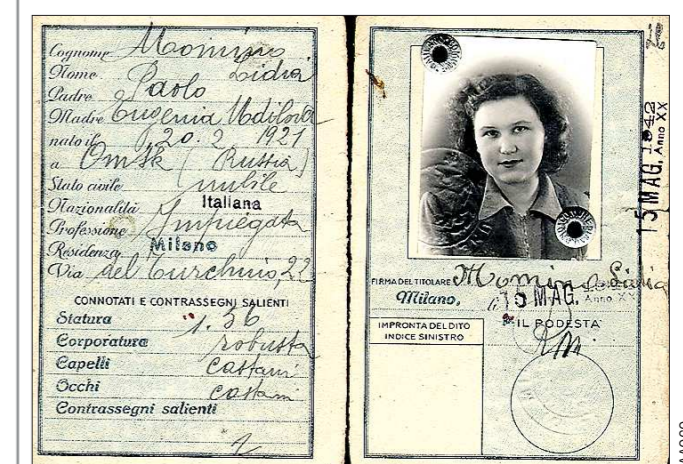 Cognome Momino
Nome Lidia
Padre Paolo
Madre Eugenia
nato il 20. 2 1921
a Omsk (Russia)
Stato civile nubile
Nazionalità Italiana
Professione Impiegata
Residenza Milano
Via del Turchino, 22
CONNOTATI E CONTRASSEGNI SALIENTI
Statura 1.56
Corporatura robusta
Capelli castani
Occhi castani
Contrassegni salienti
15 MAG. 1942 Anno XX
FIRMA DEL TITOLARE Momino Lidia
Milano, li 15 MAG. Anno XX
IL PODESTÀ
IMPRONTA DEL DITO
INDICE SINISTRO